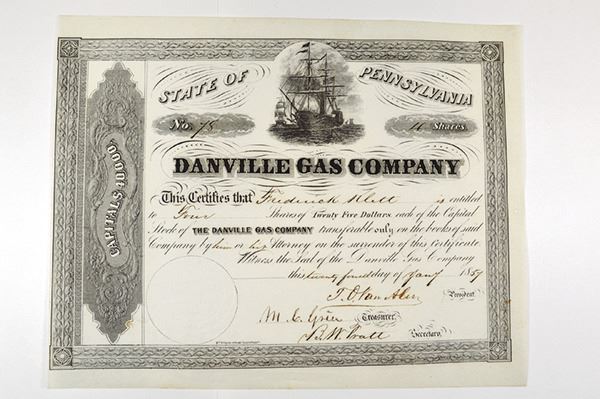 STATE OF PENNSYLVANIA
No. 78
4 Shares
DANVILLE GAS COMPANY
CAPITAL $ 40000
This Certifies that Frederick Klett is entitled
to Four Shares of Twenty Five Dollars each of the Capital
Stock of THE DANVILLE GAS COMPANY transferable only on the books of said
Company by him or his Attorney on the surrender of this Certificate.
Witness the Seal of the Danville Gas Company
this twenty day of Jany 1859
President.
M. C. Grier Treasurer.
Secretary.